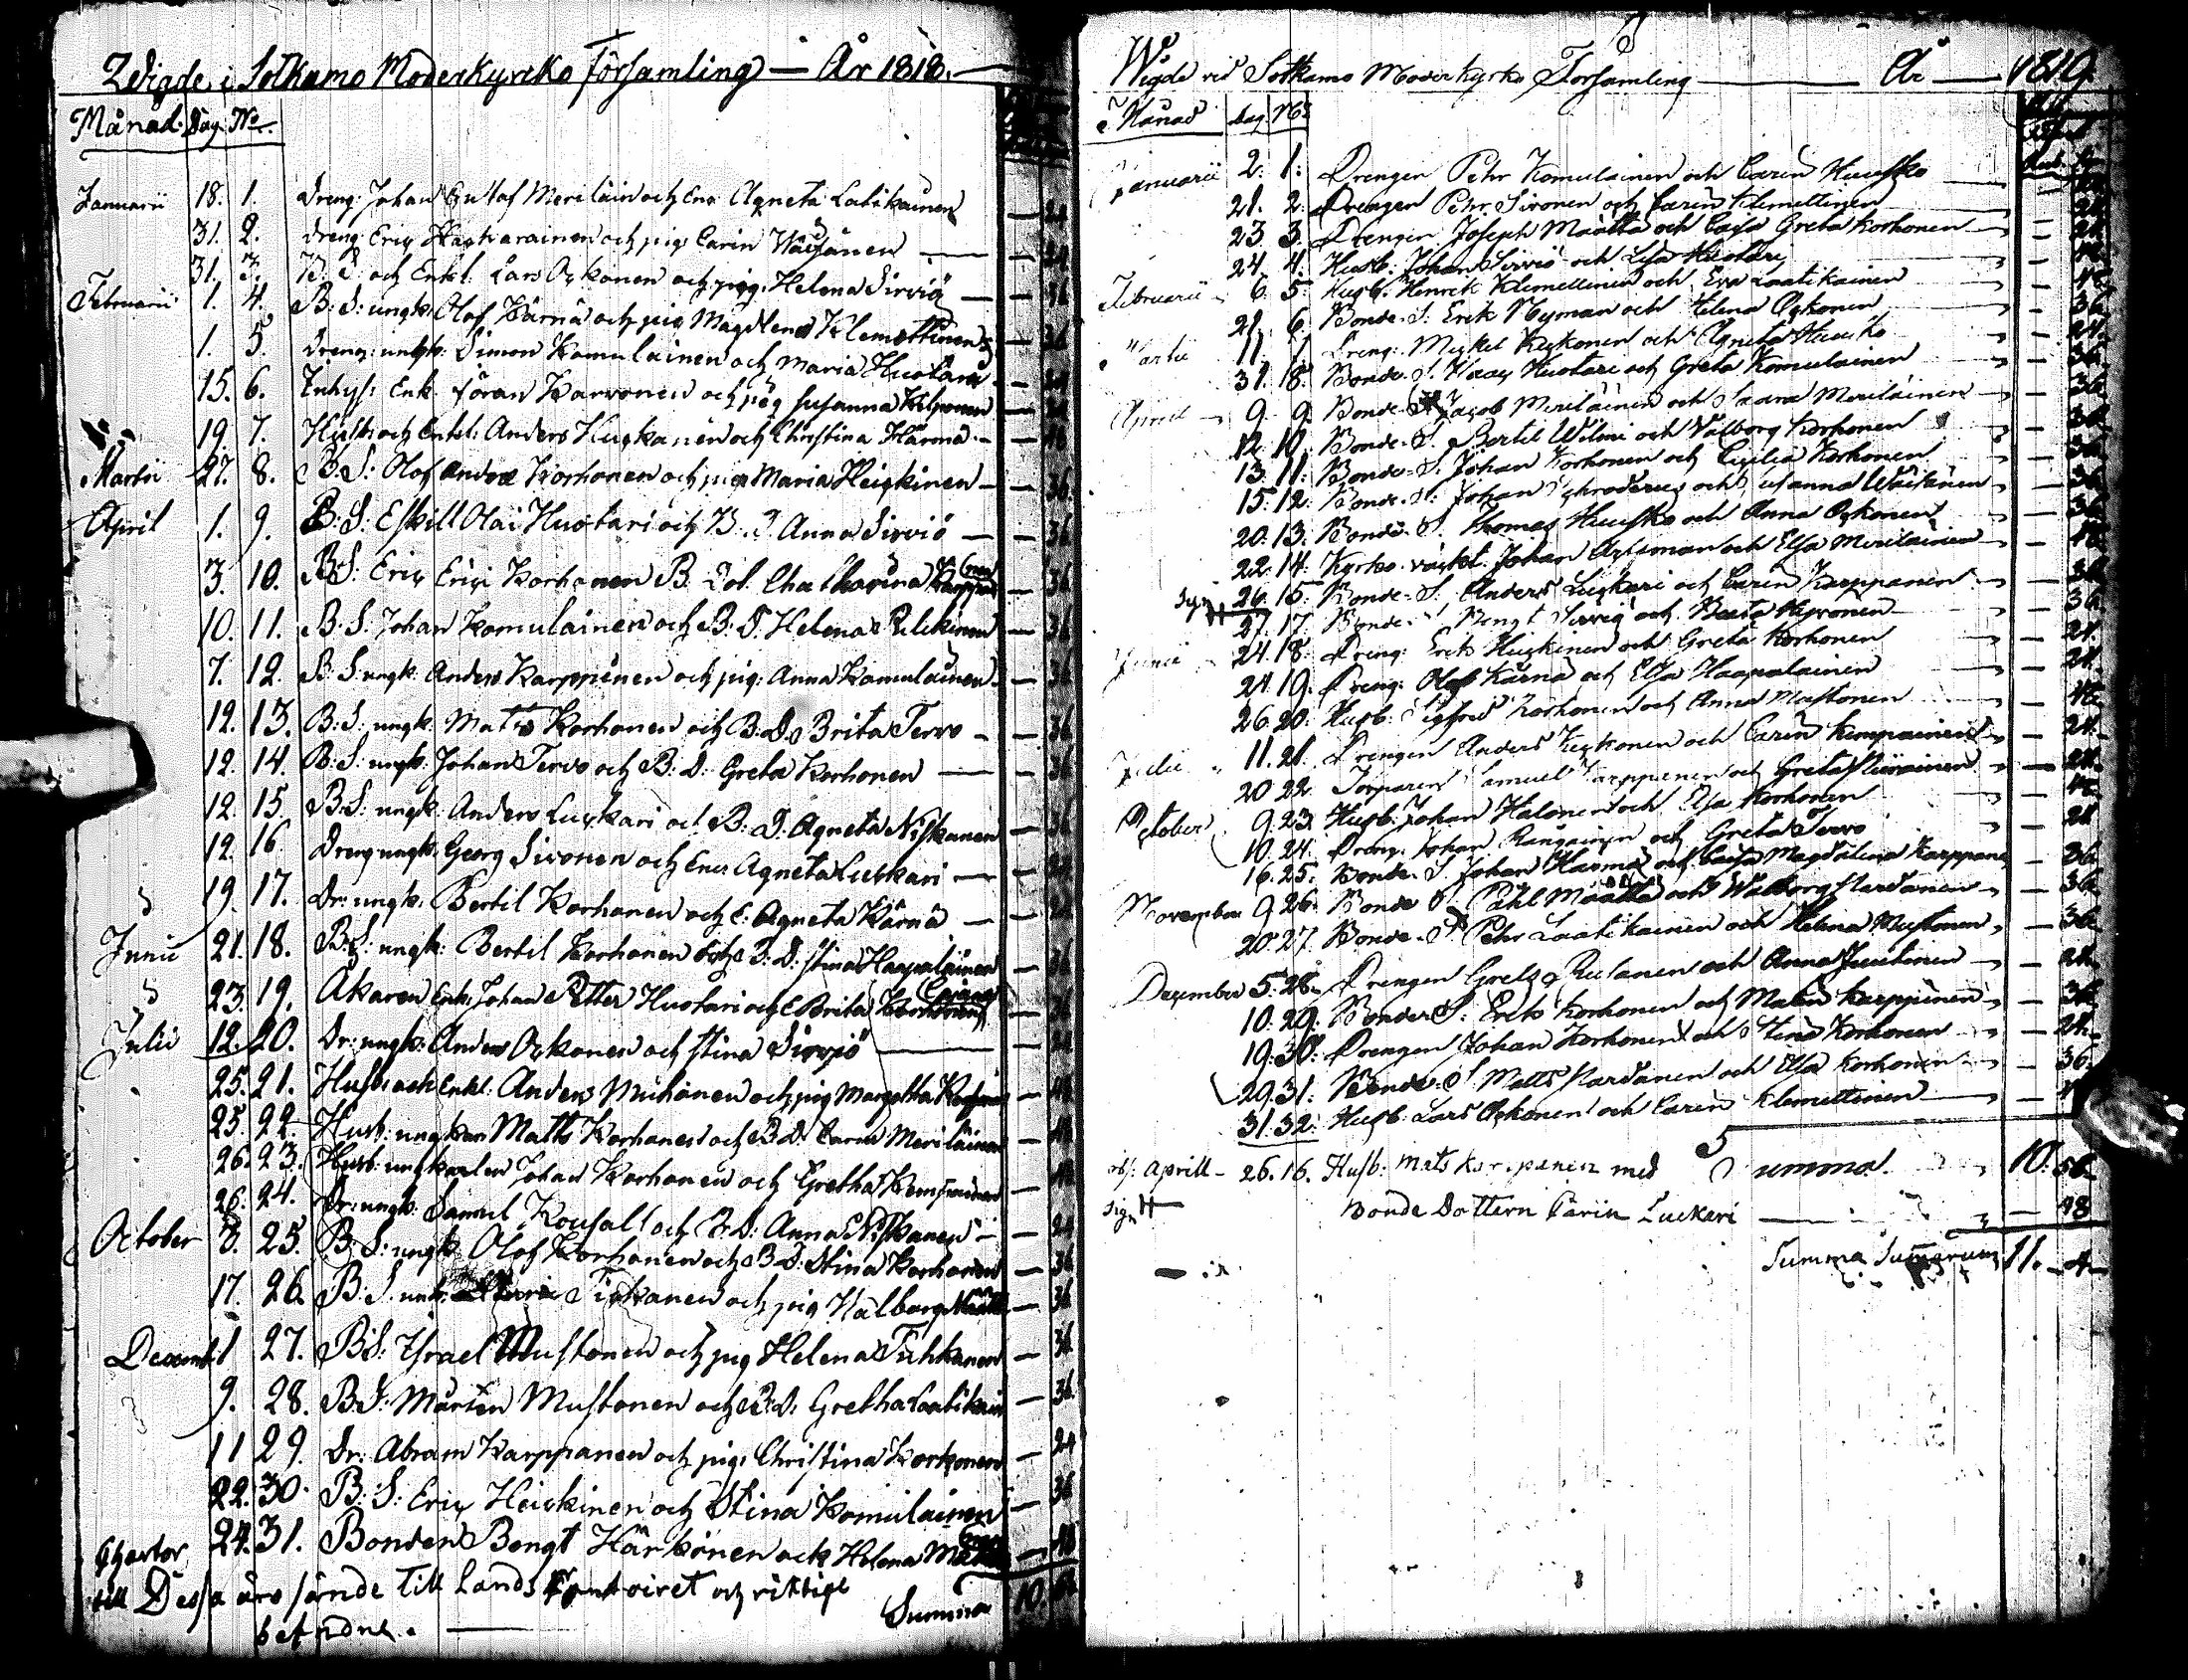 Wigde i Sotkamo Moderkyrko Församling — År 1818.
Månad. Dag. No.
Januarii 18. 1. Dreng: Johan Gustaf Meriläin och Enr Agneta Latikainen — 24
31. 2. Dreng Eric och pig Carin Väisänen — 24
31. 3. B. S: och Enkl. Lars Ockonen och pig: Helena Sirviö — 36
Februarii 1. 4. B: S: ungk: Olof Kärnä och pig Magdlena Klemettinen — 36
1. 5. Dreng: ungk: Simon Komulainen och Maria Huotari — 24
15. 6. Inhys: Enk. Jöran Karvonen och pig Susanna — 24
19. 7. Husb: och Enkl: Anders och Christina Kärnä — 48
Martii 27. 8. B: S: Olof Andrae Korhonen och pig Maria Heickinen — 36.
April 1. 9. B: S: Eskill Olai Huotari och B. D Anna Sirviö — 36
3. 10. B: S: Eric Erici Korhonen B: Dot. Chatharina — 36
10. 11. B: S: Johan Komulainen och B: D: Helena — 36
7. 12. B: S: ungk. Anders Karppinen och pig: Anna Komulainen — 36
12. 13. B: S: ungk. Matts Korhonen och B: D: Brita Tervo — 36
12. 14. B: S: ungk: Johan Tervo och B: D: Greta Korhonen — 36
12. 15. B: S: ungk. Anders Luckari och B: D: Agneta Niskanen — 36
12. 16. Dreng ungk: Georg Sivonen och Enr Agneta Luckari — 24
19. 17. Dr: ungk: Bertil Korhonen och E: Agneta Kärnä — 24
Junii 21. 18. B: S: ungk: Bertil Korhonen och B: D: Stina Haapalainen — 36
23. 19. Akaren Enk: Johan Petter Huotari och E Brita — 36
Julii 12. 20. Dr: ungk: Anders Ockonen och Stina Sirviö — 24
25. 21. Husb: och Enkl: Anders Muhonen och pig Margetha — 48
25. 22. Husb: ungkarl Matts Korhonen och B: D: Carin Meriläinen — 48
26. 23. Husb: ungkarlen Johan Korhonen och Gretha Kemppainen — 48
26. 24. Dr: ungk: Samuel och B: D: Anna E Niskanen — 24
October 3. 25. B: S: ungk: Olof Korhonen och B: D: Stina Korhonen — 36
17. 26. B: S. ungk. Tickanen och pig Walborg Määttä — 36
Decemb. 1 27. B: S: Israel Mustonen och pig Helena Tuhkanen — 36
9. 28. B: S: Mårten Mustonen och B: D: Gretha Laatikain — 36.
11 29. Dr: Abram Karppanen och pig: Christina Korhonen — 24
22. 30. B: S: Eric Heickinen och Stina Komulainen — 36
24. 31. Bonden Bengt Härkönen och Helena — 48
till Dessa års sände till Lands Contoiret och riktigt
befundne. — Summa 10.
Wigde vid Sotkamo Moder Kyrko Församling — År — 1819.
Månad Dag. No
Januarii 2. 1. Drengen Pehr Komulainen och Carin Huusko — 24
21. 2. Drengen Pehr Sivonen och Carin Klemettinen — 24.
23. 3. Drengen Joseph Määttä och Caisa Greta Korhonen — 24.
24. 4. Husb: Johan Sirviö och Lisa Huotari — 48.
Februarii 6. 5. Husb. Henrik Klemettinen och Eva Laatikainen — 48.
21. 6. Bonde-S: Erik Nyman och Helena Ockonen — 36.
Martii 11. 7. Dreng: Mickel Keckonen och Agneta Huusko — 24.
31. 8. Bonde-S. Isaac Huotari och Greta Komulainen — 36.
Aprill 9. 9. Bonde-S. Jacob Meriläinen och Saara Meriläinen — 36.
12. 10. Bonde-S. Bertil Wilmi och Walborg Korhonen — 36.
13. 11. Bonde-S. Johan Korhonen och Cecilia Korhonen — 36.
15. 12. Bonde-S. Johan Schroderus och Susanna Wäisänen — 36.
20. 13. Bonde-S. Thomas Huusko och Anna Ockonen — 36.
22. 14. Kyrko-väckt. Johan och Elsa Meriläinen — 48.
Sign 26. 15. Bonde-S. Anders Luckari och Carin Karppanen — 36.
27. 17. Bonde-S Bengt Sirviö och Beata Kyrönen — 36.
Junii 24. 18. Dreng: Erik Heickinen och Greta Korhonen — 24.
24. 19. Dreng: Olof Kärnä och Elsa Haapalainen — 24.
26. 20. Husb: Sigfrid Korhonen och Anna Mustonen — 48.
Julii 11. 21. Drengen Anders Keckonen och Carin Kemppainen — 24.
20. 22. Torparen Samuel Karppanen och Greta — 24.
October 9. 23. Husb: Johan Halonen och Elsa Korhonen — 48.
10. 24. Dreng: Johan och Greta Tervo — 24
16. 25. Bonde-S. Johan och Caisa Magdalena Karppanen — 36.
November 9. 26. Bonde S. Påhl Määttä och Walborg Nardanen — 36.
20. 27. Bonde-S. Pehr Laatikainen och Helena Mustonen — 36.
December 5. 28. Drengen Grels och Anna Juntunen — 24.
10. 29. Bonde S: Eriks Korhonen och Malin Karppinen — 36.
19. 30. Drengen Johan Korhonen och Stina Korhonen — 24.
29. 31. Bonde-S Matts Nardanen och Elsa Korhonen — 36.
31. 32. Husb: Lars Ockonen och Carin Klemettinen — 48
obs: Aprill — 26. 16. Husb: Mats Karppanen med Summa. 10. 56.
Sign Bonde Dottern Carin Luckari — 48
Summa Summarum 11. 4